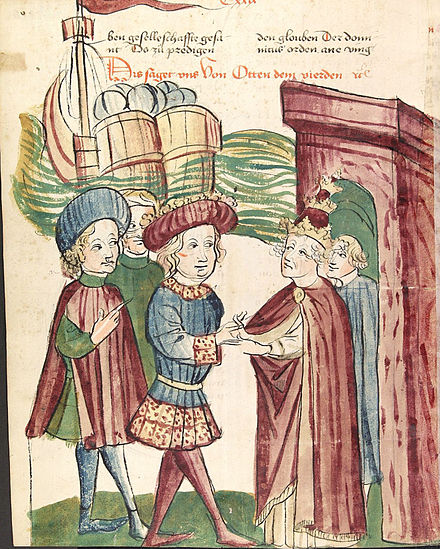 ben geselleschafft gesa
nt Do zů predigen
den glouben Der domi
nicus orden ane ving
Dis saget vns Von Otten dem vierden